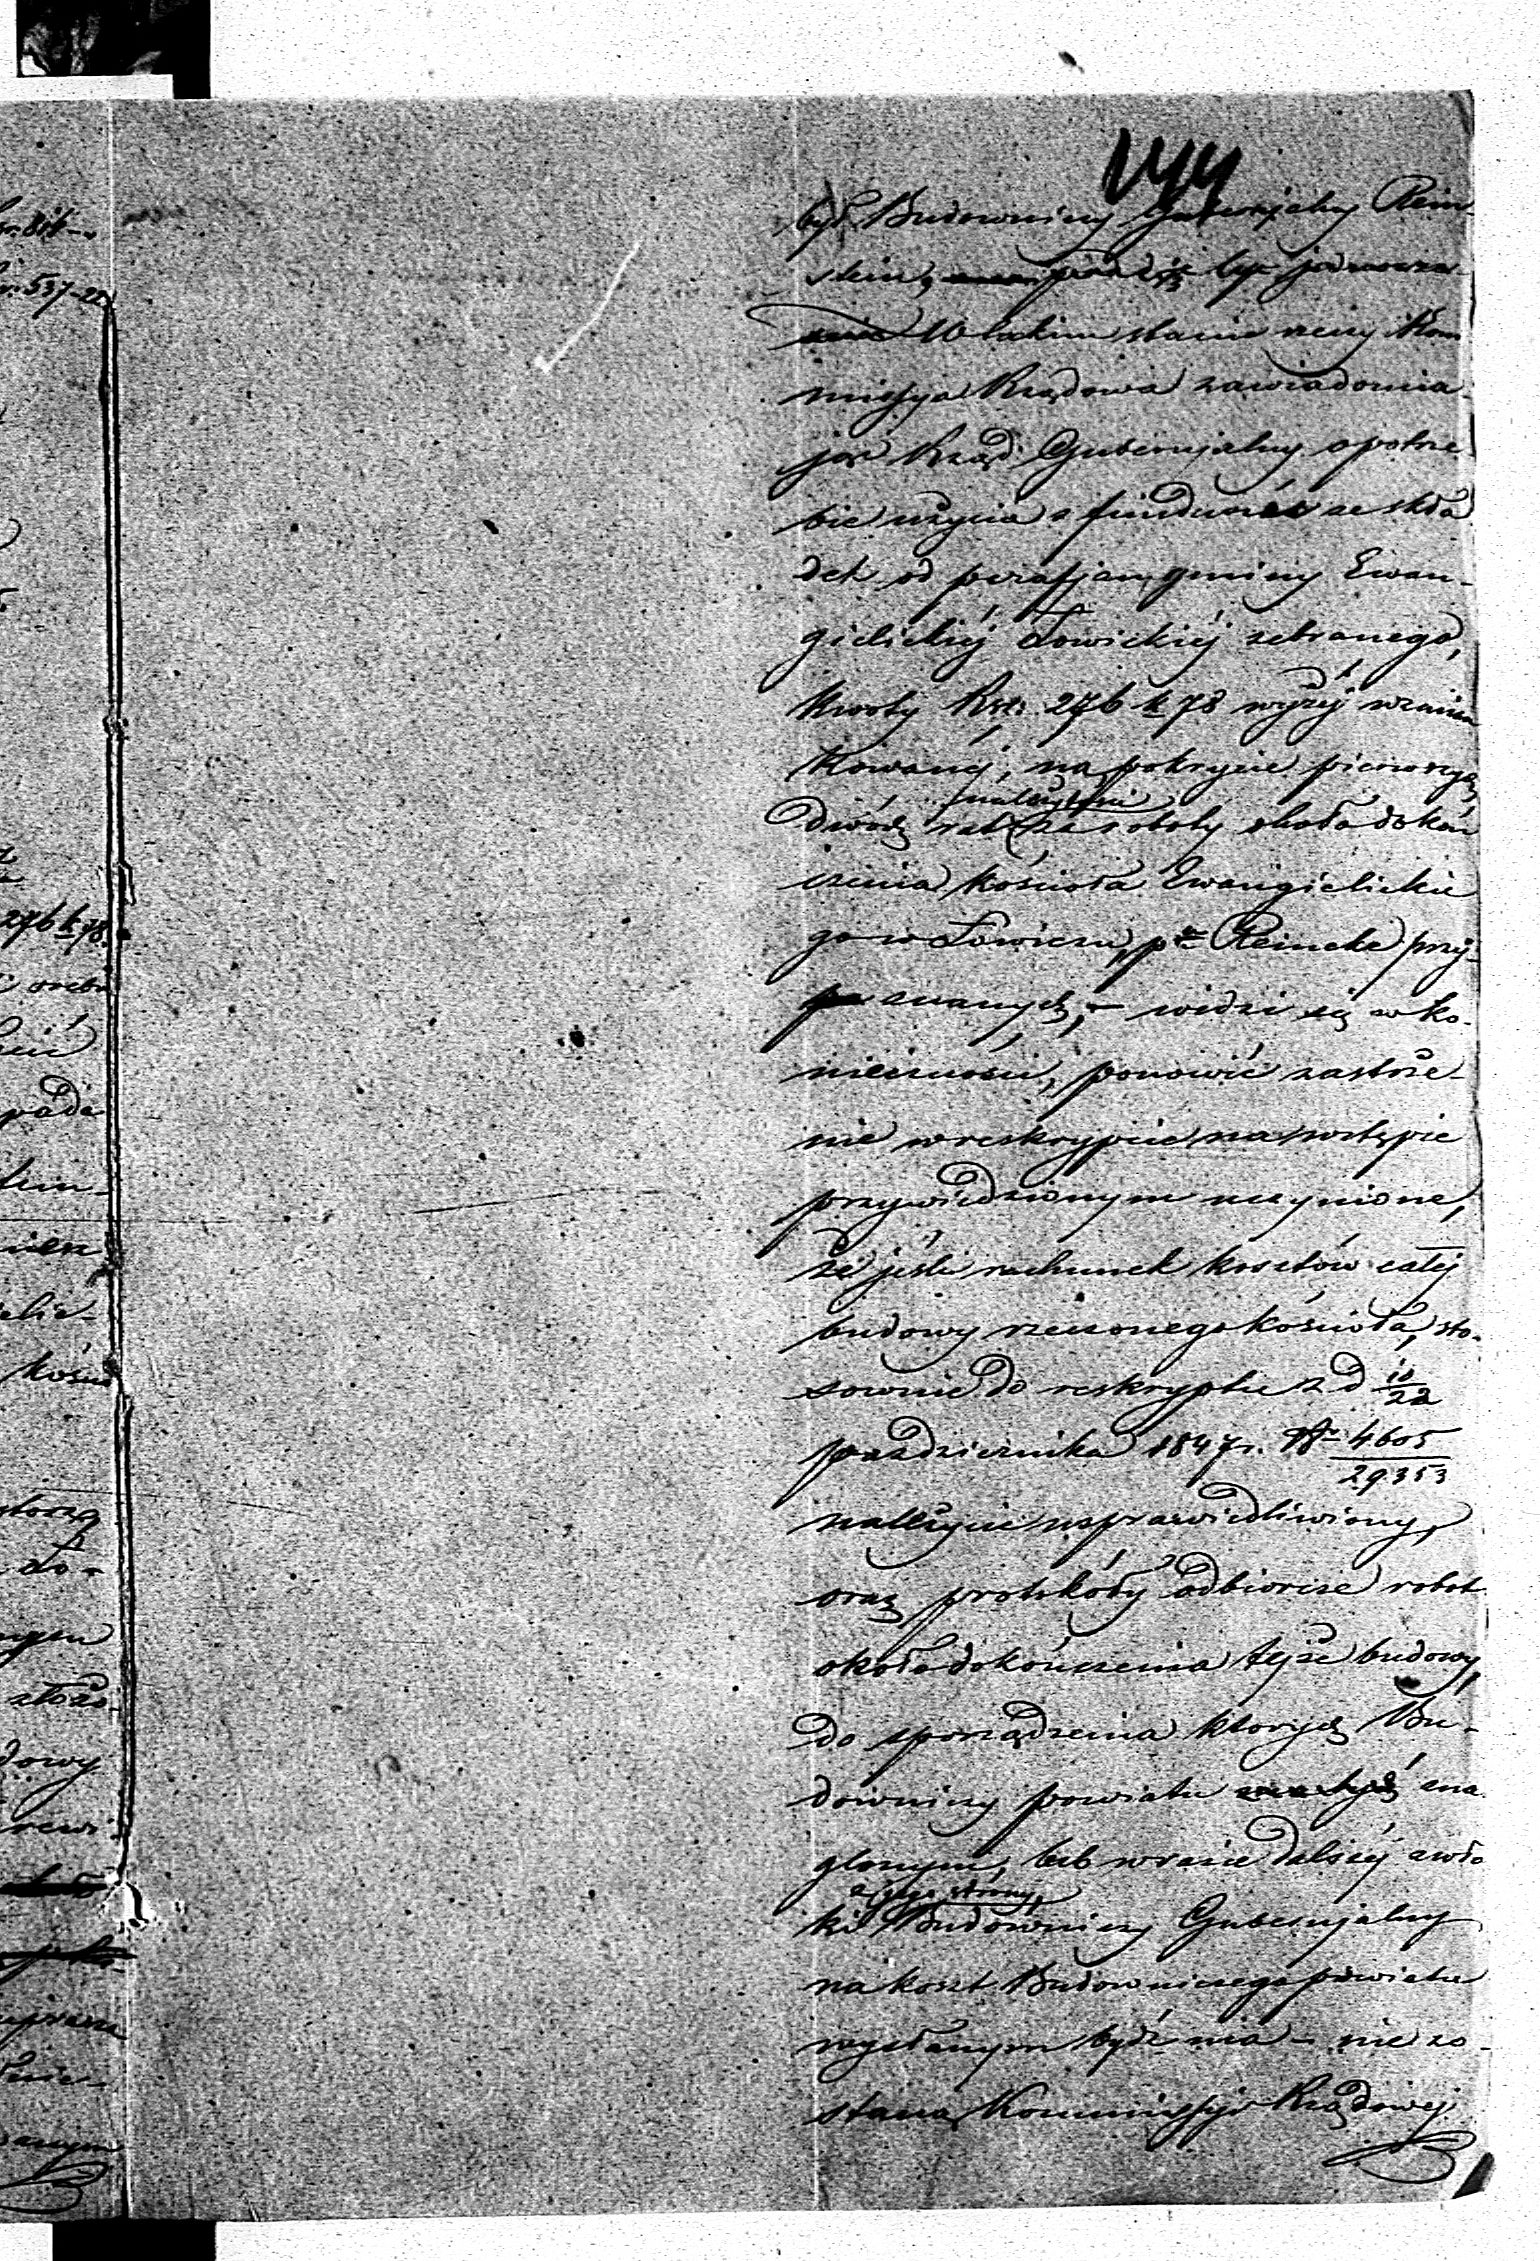 144
być Budowniczy Gubernjalny Rein-
stein,
W takim stanie rzeczy Kom
missya Rządowa zawiadomia-
jąc Rząd Gubernjalny o potrze
bie użycia z funduszów ze skła
dek od parafjan gminy Ewan-
gielickiéj Łowickiéj zebranego,
kwoty Rsr. 276 k 78 wyżéj wzmian
kowanéj, na pokrycie pierwszych
należytości
dwóch rat za roboty około dokoń
czenia kościoła Ewangielickie
go w Łowiczu, pnu Reincke przy-
znanych, – widzi się w ko-
nieczności, ponowić zastrze-
nie w reskrypcie na wstępie
przywiedzionym uczynione,
że jeśli rachunek kosztów całéj
budowy rzeczonego kościoła, sto-
sownie do reskryptu z d 10/22
października 1847 r. Nr 4605/29353
należycie usprawiedliwiony,
oraz protokóły odbiorcze robot
około dokończenia téjże budowy,
do sporządzenia ktorych Bu-
downiczy powiatu zna
glonym, lub w razie dalszéj zwło
z jego strony,
ki Budowniczy Gubernjalny
na koszt Budowniczego powiatu
wysłanym bydź ma – nie zo-
staną Kommissyi Rządowéj
276 k 78.
537-22
pada
kości
Ło-
dowy